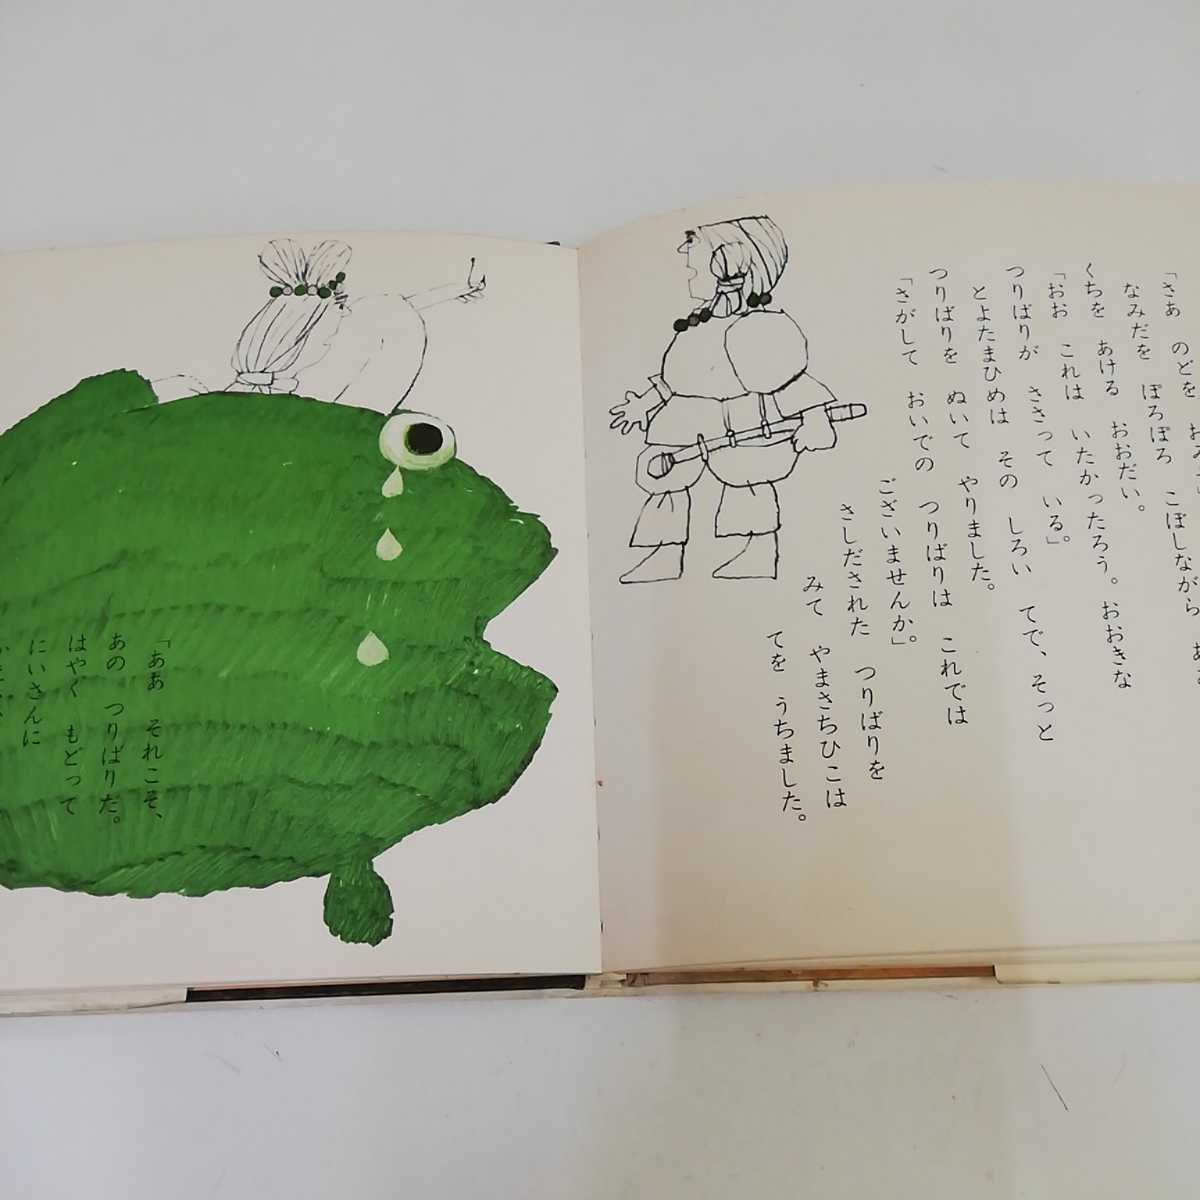 「さあ のどを
なみだを ぽろぽろ こぼしながら
くちを あける おおだい。
「おお これは いたかったろう。おおきな
つりばりが ささって いる」
とよたまひめは その しろい てで、そっと
つりばりを ぬいて やりました。
「さがして おいでの つりばりは これでは
ございませんか」
さしだされた つりばりを
みて やまさちひこは
てを うちました。
「ああ それこそ、
あの つりばりだ。
はやく もどって
にいさんに